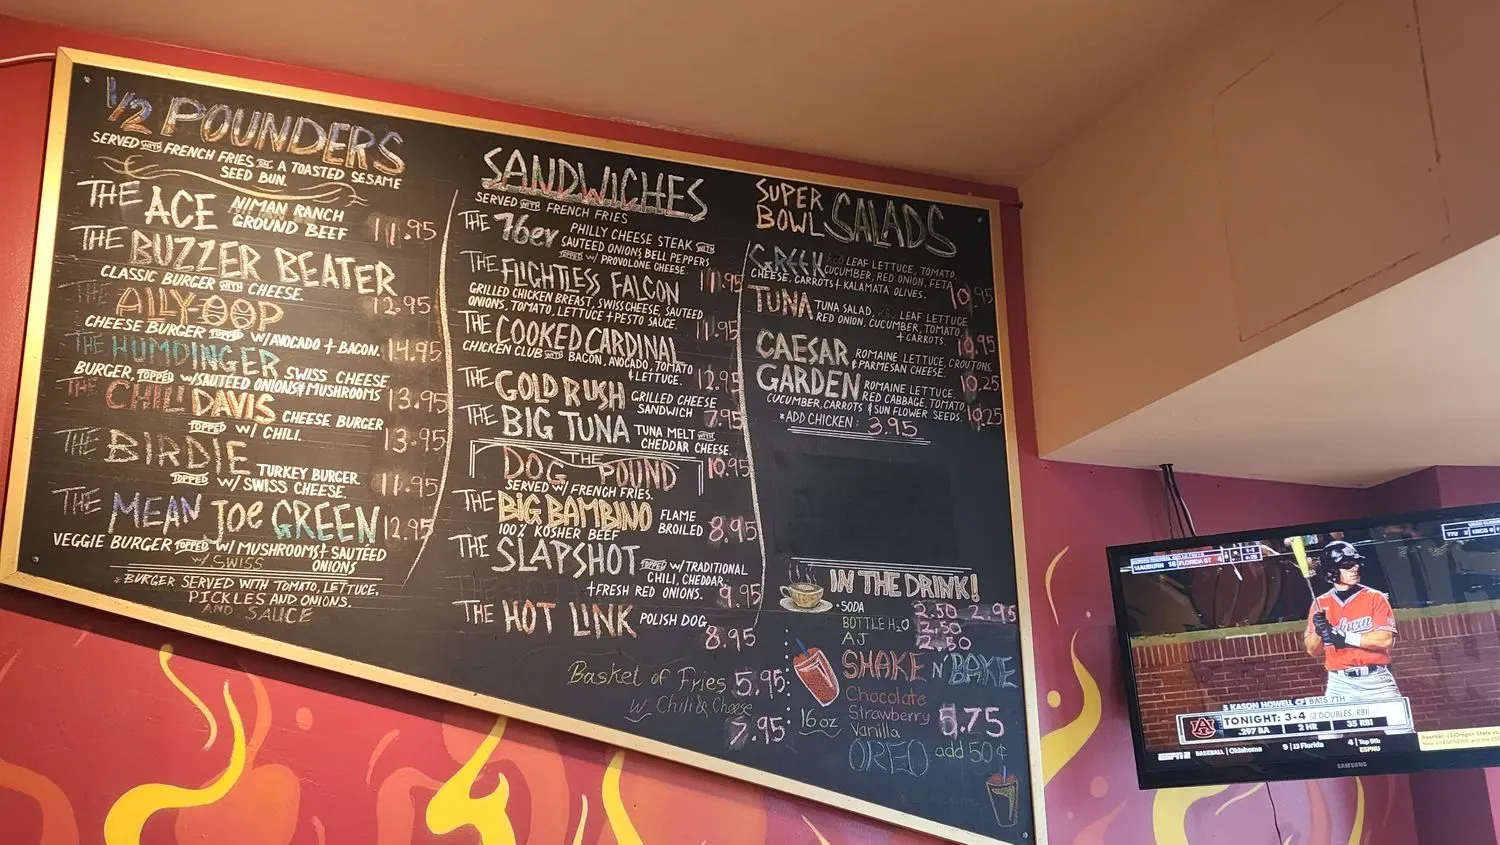 1/2 POUNDERS
SERVED WITH FRENCH FRIES ON A TOASTED SESAME
SEED BUN.
THE ACE NIMAN RANCH
GROUND BEEF 11.95
THE BUZZER BEATER
CLASSIC BURGER WITH CHEESE. 12.95
THE ALLY-OOP
CHEESE BURGER TOPPED W/AVOCADO + BACON. 14.95
THE HUMDINGER SWISS CHEESE
BURGER, TOPPED W/SAUTÉED ONIONS & MUSHROOMS 13.95
THE CHILI DAVIS CHEESE BURGER
TOPPED W/ CHILI. 13.95
THE BIRDIE TURKEY BURGER
TOPPED W/ SWISS CHEESE. 11.95
THE MEAN JOE GREEN 12.95
VEGGIE BURGER TOPPED W/ MUSHROOMS + SAUTÉED
ONIONS
W/ SWISS
*BURGER SERVED WITH TOMATO, LETTUCE,
PICKLES AND ONIONS.
AND SAUCE
SANDWICHES
SERVED WITH FRENCH FRIES
THE 76er PHILLY CHEESE STEAK WITH
SAUTEED ONIONS BELL PEPPERS
TOPPED W/ PROVOLONE CHEESE. 11.95
THE FLIGHTLESS FALCON
GRILLED CHICKEN BREAST, SWISS CHEESE, SAUTEED
ONIONS, TOMATO, LETTUCE + PESTO SAUCE. 11.95
THE COOKED CARDINAL
CHICKEN CLUB WITH BACON, AVOCADO, TOMATO
& LETTUCE. 12.95
THE GOLD RUSH GRILLED CHEESE
SANDWICH 7.95
THE BIG TUNA TUNA MELT WITH
CHEDDAR CHEESE. 10.95
THE
DOG POUND
SERVED W/ FRENCH FRIES.
THE BIG BAMBINO FLAME
BROILED 8.95
100% KOSHER BEEF
THE SLAPSHOT TOPPED W/ TRADITIONAL
CHILI, CHEDDAR,
+ FRESH RED ONIONS. 9.95
THE HOT LINK POLISH DOG
8.95
Basket of Fries 5.95
w/ Chili & Cheese
7.95
SUPER
BOWL SALADS
GREEK RED LEAF LETTUCE, TOMATO,
CUCUMBER, RED ONION, FETA
CHEESE, CARROTS + KALAMATA OLIVES. 10.95
TUNA TUNA SALAD, RED LEAF LETTUCE
RED ONION, CUCUMBER, TOMATO,
+ CARROTS. 10.95
CAESAR ROMAINE LETTUCE, CROUTONS,
& PARMESAN CHEESE. 10.25
GARDEN ROMAINE LETTUCE,
RED CABBAGE, TOMATO,
CUCUMBER, CARROTS & SUN FLOWER SEEDS. 10.25
*ADD CHICKEN: 3.95
IN THE DRINK!
•SODA 2.50 2.95
BOTTLE H2O 2.50
AJ 2.50
SHAKE N' BAKE
Chocolate
Strawberry
Vanilla
16 oz 5.75
OREO add 50¢
FLORIDA ST
3 KASON HOWELL CF BATS 7TH
TONIGHT: 3-4 (2 DOUBLES, RBI)
.297 BA 2 HR 35 RBI
ESPN2 BASEBALL Oklahoma 9 13 Florida 4 Top 5th
ESPNU
SAMSUNG